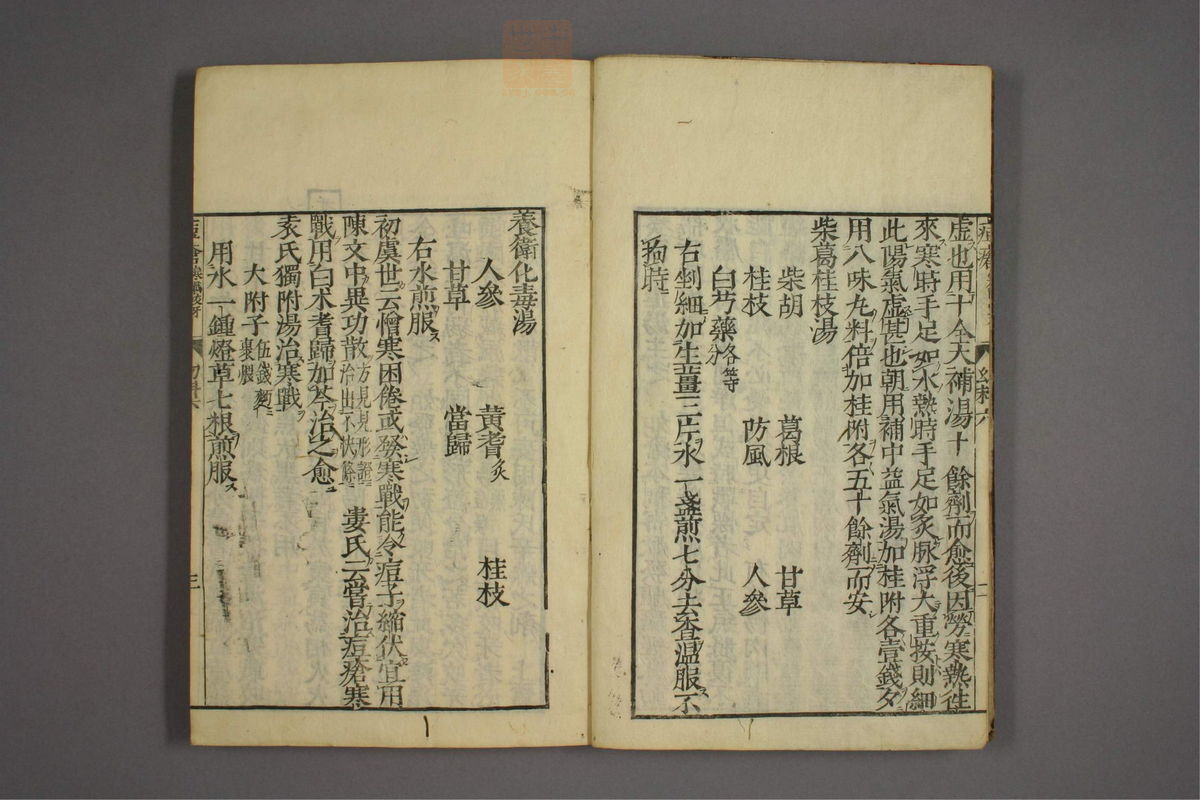 虛也用十全大補湯十餘劑而愈後因勞寒熱徃
來寒時手足如氷熱時手足如炙脉浮大重按則細
此陽氣虛甚也朝用補中益氣湯加桂附各壹錢夕
用八味丸料倍加桂附各五十餘劑而安
柴葛桂枝湯
柴胡 葛根 甘草
桂枝 防風 人參
白芍藥各等分
右剉細加生薑三片水一盞煎七分去渣温服不
拘時
養衛化毒湯
人參 黃耆炙 桂枝
甘草 當歸
右水煎服
初虞世云憎寒困倦或發寒戰能令痘子縮伏宜用
陳文中異功散方見見形證治出不快條 婁氏云嘗治痘瘡寒
戰用白朮耆歸加芩治之愈
袁氏獨附湯治寒戰
大附子伍錢麪裹煨
用水一鍾燈草七根煎服
三